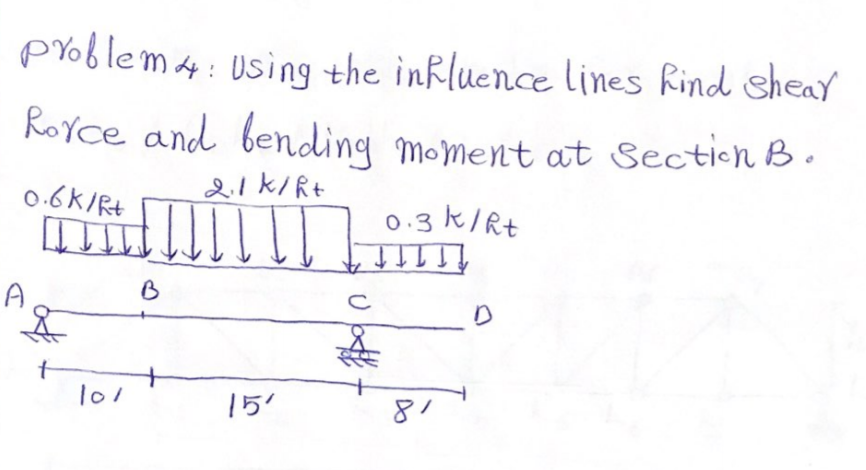 problem 4: Using the influence lines find shear
force and bending moment at section B.
2.1 k/ft
0.6k/ft
0.3 k/ft
A B C D
10' 15' 8'